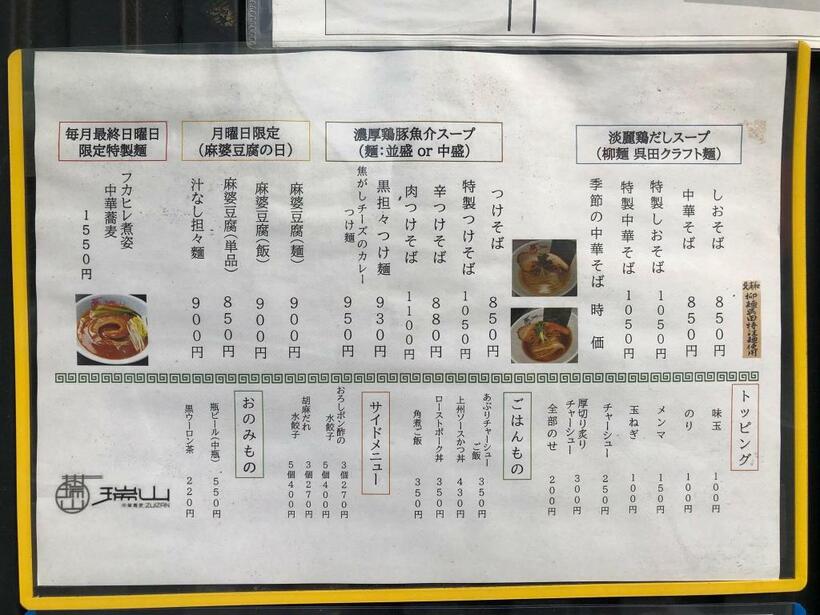 淡麗鶏だしスープ
(柳麺 呉田クラフト麺)
しおそば 850円
中華そば 850円
特製しおそば 1050円
特製中華そば 1050円
季節の中華そば 時価
濃厚鶏豚魚介スープ
(麺:並盛 or 中盛)
つけそば 850円
特製つけそば 1050円
辛つけそば 880円
肉つけそば 1100円
黒担々つけ麺 930円
焦がしチーズのカレー
つけ麺 950円
月曜日限定
(麻婆豆腐の日)
麻婆豆腐(麺) 900円
麻婆豆腐(飯) 900円
麻婆豆腐(単品) 850円
汁なし担々麺 900円
毎月最終日曜日
限定特製麺
フカヒレ煮姿
中華蕎麦
1550円
トッピング
味玉 100円
のり 100円
メンマ 150円
玉ねぎ 100円
チャーシュー 250円
厚切り炙り
チャーシュー 300円
全部のせ 200円
ごはんもの
あぶりチャーシュー
ご飯 350円
上州ソースかつ丼 430円
ローストポーク丼 350円
角煮ご飯 350円
サイドメニュー
おろしポン酢の
水餃子
3個270円
5個400円
胡麻だれ
水餃子
3個270円
5個400円
おのみもの
瓶ビール(中瓶) 550円
黒ウーロン茶 220円
瑞山
中華蕎麦 ZUIZAN